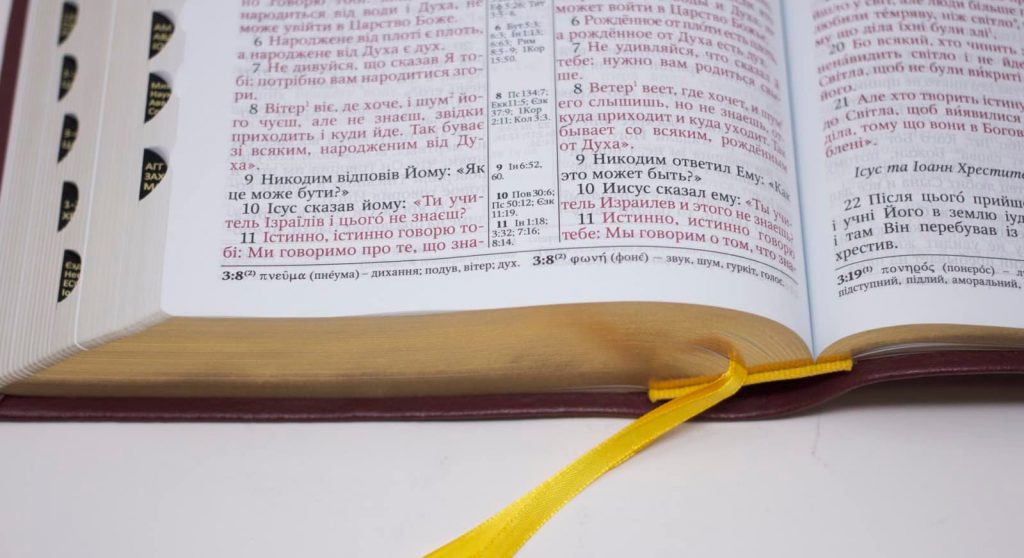 народитися від води і Духа, не
може увійти в Царство Боже.
6 Народжене від плоті є плоть,
а народжене від Духа є дух.
7 Не дивуйся, що сказав Я то-
бі: потрібно вам народитися зго-
ри.
8 Вітер¹ віє, де хоче, і шум² йо-
го чуєш, але не знаєш, звідки
приходить і куди йде. Так буває
зі всяким, народженим від Ду-
ха».
9 Никодим відповів Йому: «Як
це може бути?»
10 Ісус сказав йому: «Ти учи-
тель Ізраїлів і цього́ не знаєш?
11 Істинно, істинно говорю то-
бі: Ми говоримо про те, що зна-
Еф 5:26; Тит
3:5-6.
6 Бут 5:3;
6:3; Ін 1:13;
6:63; Рим
8:5-9; 1Кор
15:50.
8 Пс 134:7;
Екк11:5; Єзк
37:9; 1Кор
2:11; Кол 3:3.
9 Ін 6:52,
60.
10 Пов 30:6;
Пс 50:12; Єзк
11:19.
11 Ін 1:18;
3:32; 7:16;
8:14.
может войти в Царство Божие.
6 Рождённое от плоти есть плоть,
а рождённое от Духа есть дух.
7 Не удивляйся, что сказал Я
тебе: нужно вам родиться свы-
ше.
8 Ветер¹ веет, где хочет, и шум²
его слышишь, но не знаешь, от-
куда приходит и куда уходит. Так
бывает со всяким, рождённым
от Духа».
9 Никодим ответил Ему: «Как
это может быть?»
10 Иисус сказал ему: «Ты учи-
тель Израилев и этого не знаешь?
11 Истинно, истинно говорю
тебе: Мы говорим о том, что зна-
3:8⁽²⁾ πνεῦμα (пне́ума) – дихання; подув, вітер; дух. 3:8⁽²⁾ φωνή (фоне́) – звук, шум, гуркіт, голос.
любили темряву, ніж світло,
му що діла їхні були злі¹.
20 Бо всякий, хто чинить
ненави́дить світло і не йде
Світла, щоб не були ви́криті
його.
21 Але хто творить істину
до Світла, щоб ви́явилися
діла, тому що вони в Богові
блені».
Ісус та Іоанн Хреститель
22 Після цього́ прийшов
і учні Його в землю
і там Він перебував із
хрестив.
3:19⁽¹⁾ πονηρός (понеро́с) –
підступний, підлий, аморальний,